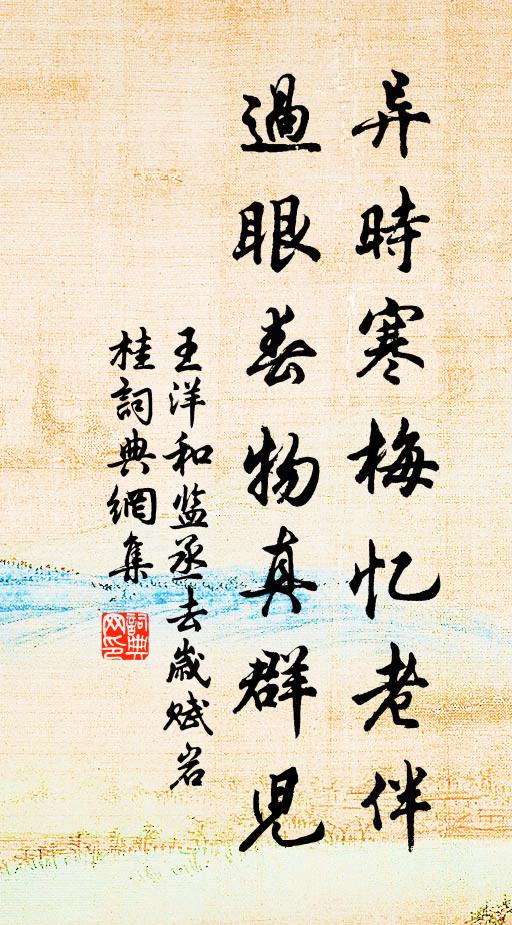 异時寒梅忆老伴
過眼春物真群兒
王洋和监丞去歲赋岩
桂詞典網集
詞典网印